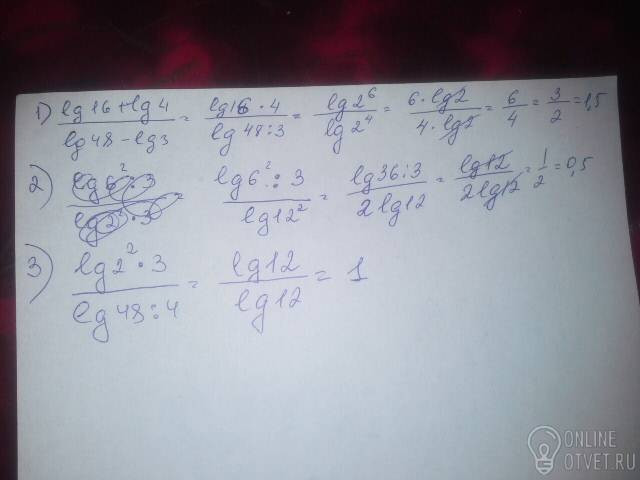 1) (lg16+lg4)/(lg48-lg3) = (lg16·4)/(lg48:3) = (lg2⁶)/(lg2⁴) = (6·lg2)/(4·lg2) = 6/4 = 3/2 = 1,5
2) (lg6²:3)/(lg12²) = (lg36:3)/(2lg12) = (lg12)/(2lg12) = 1/2 = 0,5
3) (lg2²·3)/(lg48:4) = (lg12)/(lg12) = 1
ONLINE
OTVET.RU